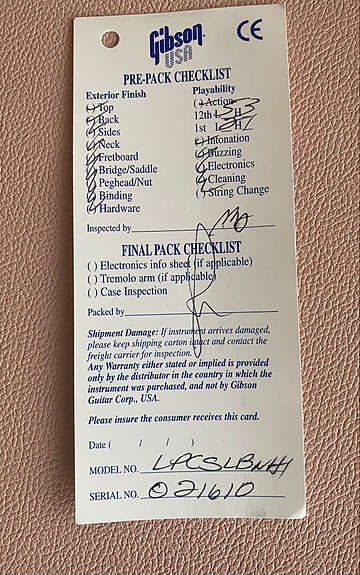 Gibson
USA
CE
PRE-PACK CHECKLIST
Exterior Finish
( ) Top
( ) Back
( ) Sides
( ) Neck
( ) Fretboard
( ) Bridge/Saddle
( ) Peghead/Nut
( ) Binding
( ) Hardware
Playability
( ) Action
12th L H
1st L H
( ) Intonation
( ) Buzzing
( ) Electronics
( ) Cleaning
( ) String Change
Inspected by
FINAL PACK CHECKLIST
( ) Electronics info sheet (if applicable)
( ) Tremolo arm (if applicable)
( ) Case Inspection
Packed by
Shipment Damage: If instrument arrives damaged,
please keep shipping carton intact and contact the
freight carrier for inspection.
Any Warranty either stated or implied is provided
only by the distributor in the country in which the
instrument was purchased, and not by Gibson
Guitar Corp., USA.
Please insure the consumer receives this card.
Date ( / / )
MODEL NO. LPCSLBNH1
SERIAL NO. 021610